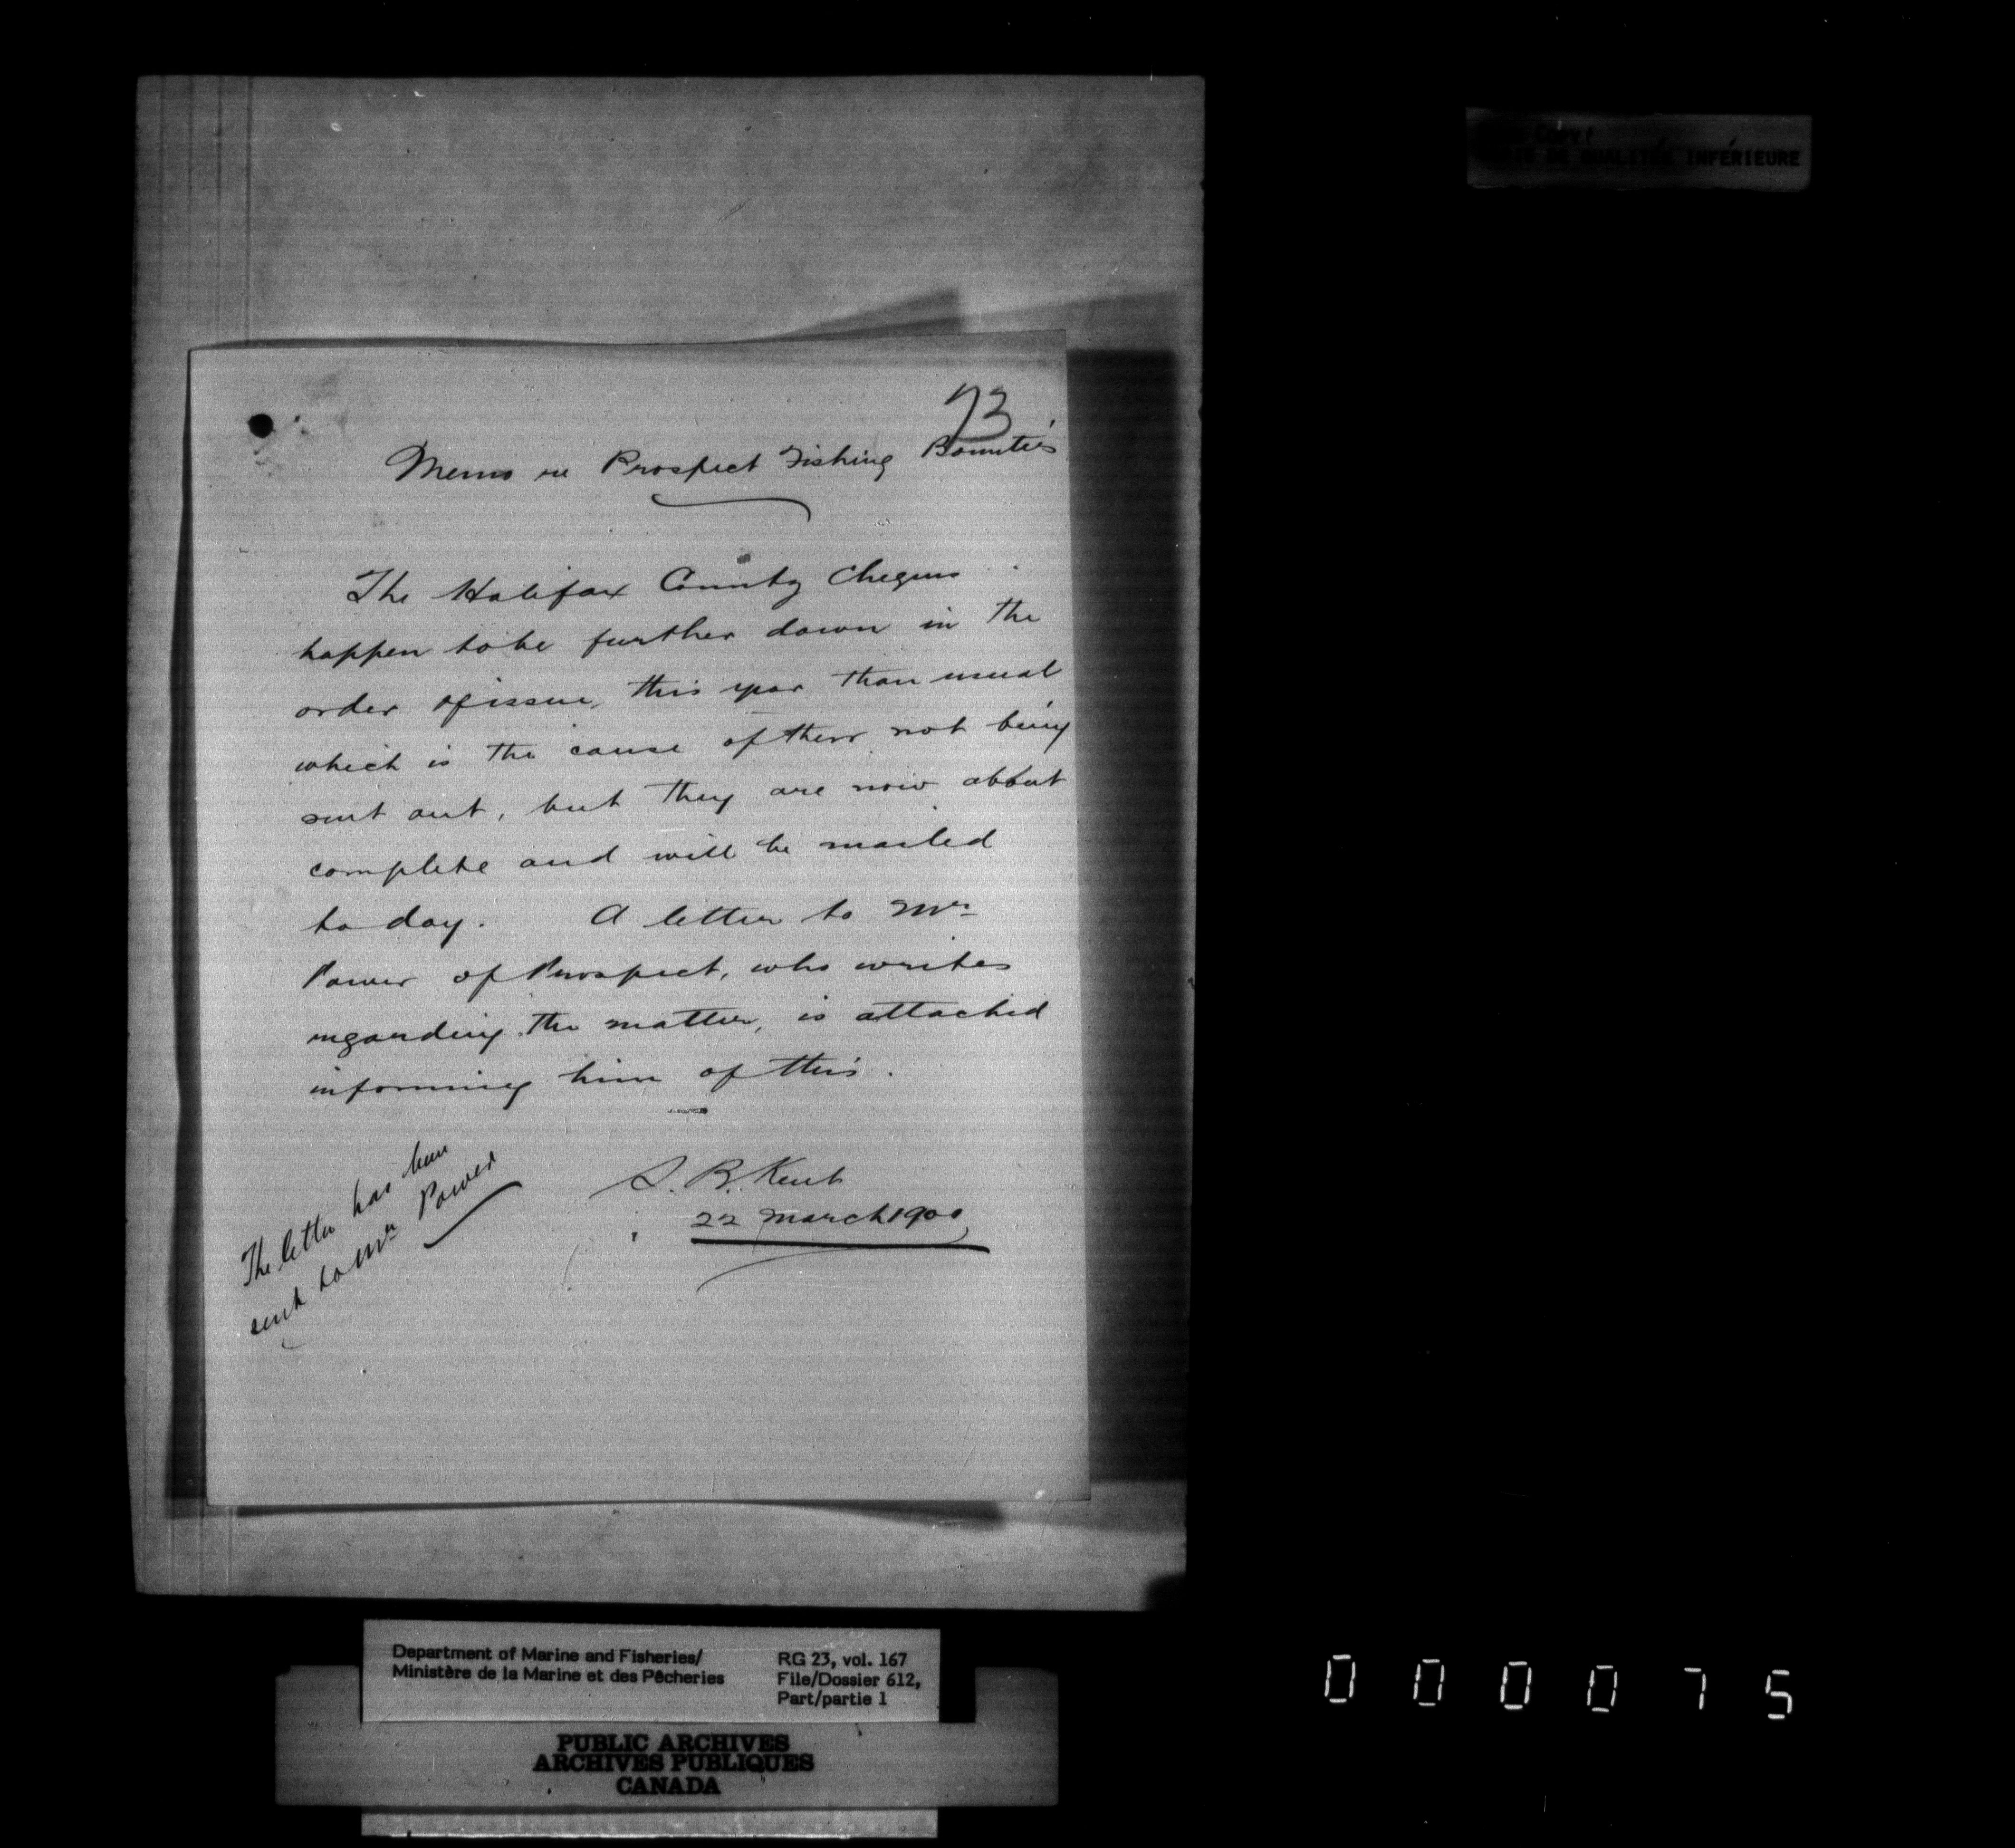 73
Memo re Prospect Fishing Bounties
The Halifax County Cheques
happen to be further down in the
order of issue, this year than usual
which is the cause of their not being
sent out, but they are now about
complete and will be mailed
to day. A letter to Mr
Power of Prospect, who writes
regarding the matter, is attached
informing him of this.
S. B. Kent
22 March 1900
The letter has been
sent to Mr Power
Department of Marine and Fisheries/
Ministère de la Marine et des Pêcheries
RG 23, vol. 167
File/Dossier 612,
Part/partie 1
PUBLIC ARCHIVES
ARCHIVES PUBLIQUES
CANADA
DE QUALITÉE INFÉRIEURE
000075